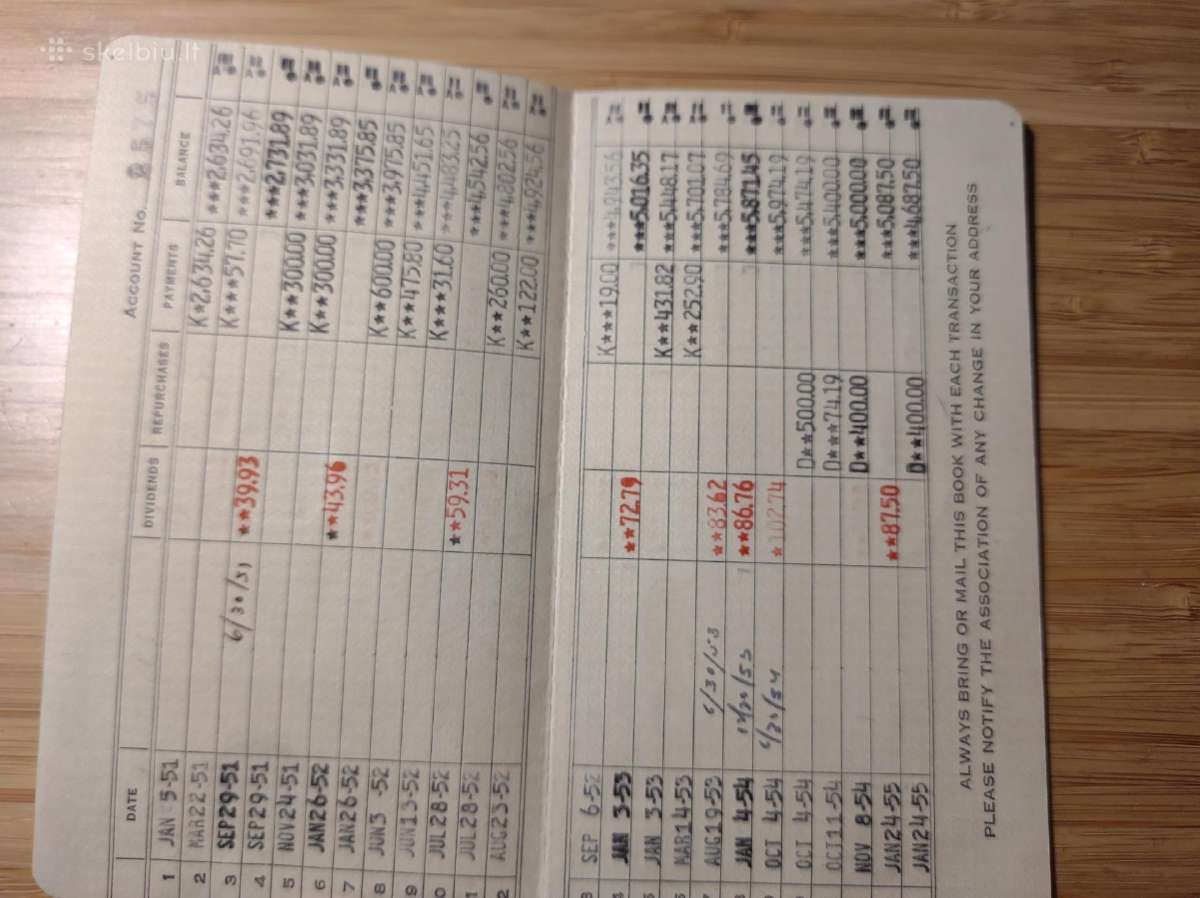 skelbiu.lt
ACCOUNT No.
DATE DIVIDENDS REPURCHASES PAYMENTS BALANCE
1 JAN 5-51 K*2,634.26 ***2,634.26
2 MAR22-51 K***57.70 ***2,691.96
3 SEP29-51 6/30/51 **39.93 ***2,731.89
4 SEP29-51 K**300.00 ***3,031.89
5 NOV24-51 K**300.00 ***3,331.89
6 JAN26-52 **43.96 ***3,375.85
7 JAN26-52 K**600.00 ***3,975.85
8 JUN3 -52 K**475.80 ***4,451.65
9 JUN13-52 K***31.60 ***4,483.25
0 JUL28-52 **59.31 ***4,542.56
1 JUL28-52 K**260.00 ***4,802.56
2 AUG23-52 K**122.00 ***4,924.56
3 SEP 6-52 K***19.00 ***4,943.56
4 JAN 3-53 **72.79 ***5,016.35
5 JAN 3-53 K**431.82 ***5,448.17
6 MAR14-53 K**252.90 ***5,701.07
7 AUG19-53 6/30/53 **83.62 ***5,784.69
8 JAN 4-54 12/30/53 **86.76 ***5,871.45
9 OCT 4-54 6/30/54 *102.74 ***5,974.19
0 OCT 4-54 D**500.00 ***5,474.19
OCT11-54 D***74.19 ***5,400.00
NOV 8-54 D**400.00 ***5,000.00
JAN24-55 **87.50 ***5,087.50
JAN24-55 D**400.00 ***4,687.50
ALWAYS BRING OR MAIL THIS BOOK WITH EACH TRANSACTION
PLEASE NOTIFY THE ASSOCIATION OF ANY CHANGE IN YOUR ADDRESS